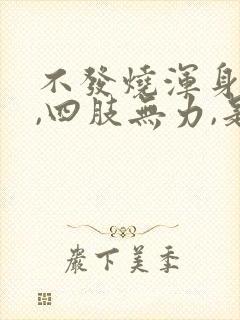 不發燒渾身
,四肢無力,
嚴下美季